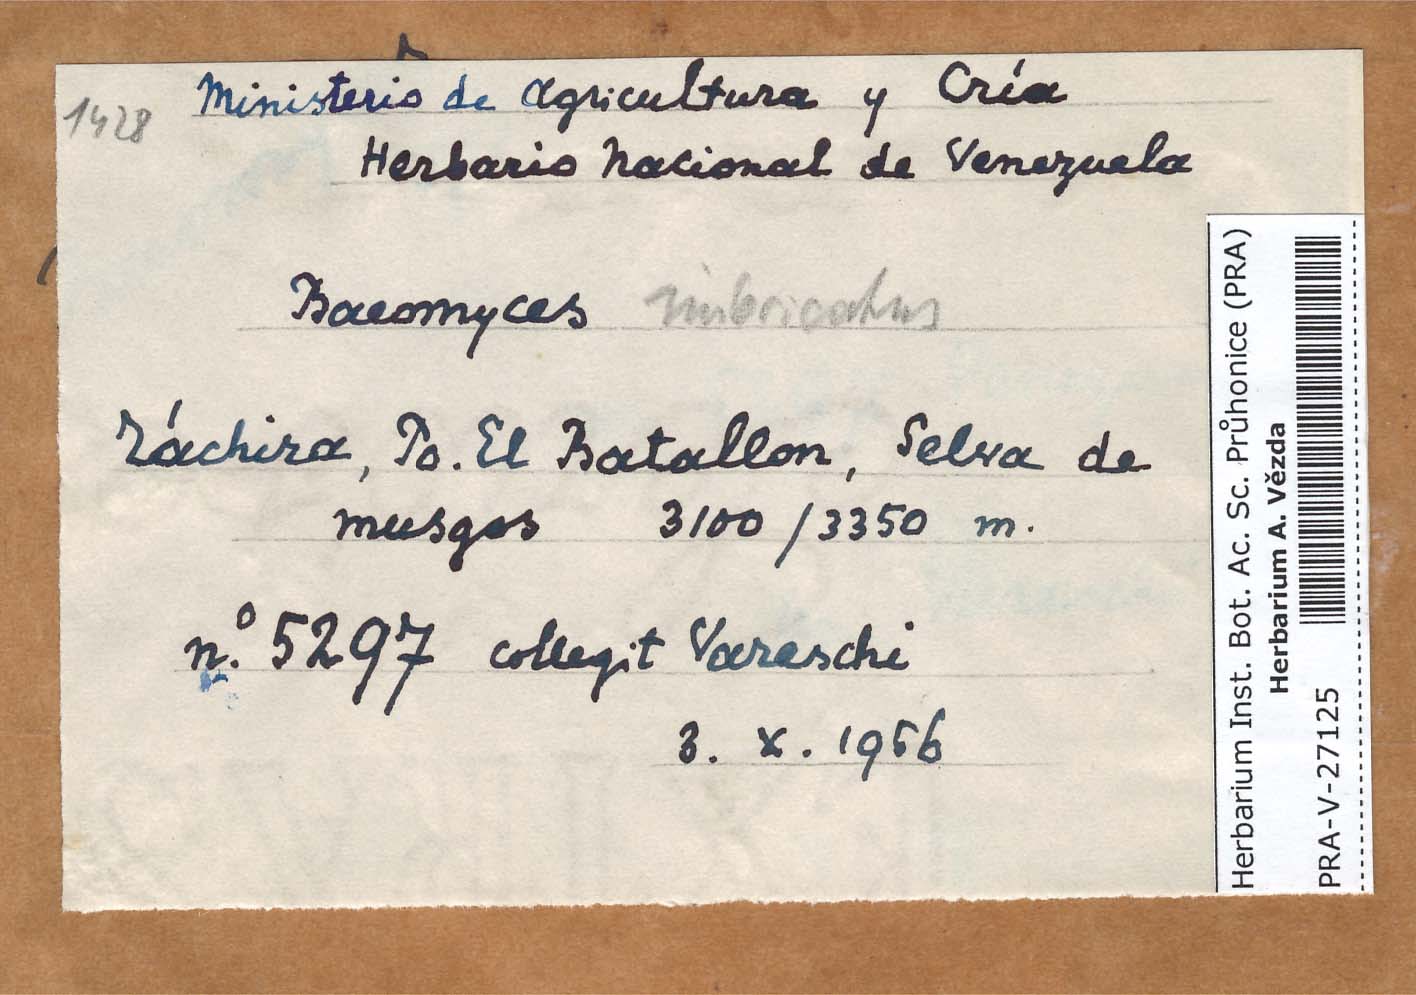 1428
Ministerio de Agricultura y Cría
Herbario Nacional de Venezuela
Baeomyces imbricatus
Táchira, Po. El Batallon, Selva de
musgos 3100 / 3350 m.
n.º 5297 collegit Vareschi
3. X. 1956
Herbarium Inst. Bot. Ac. Sc. Průhonice (PRA)
Herbarium A. Vězda
PRA-V-27125